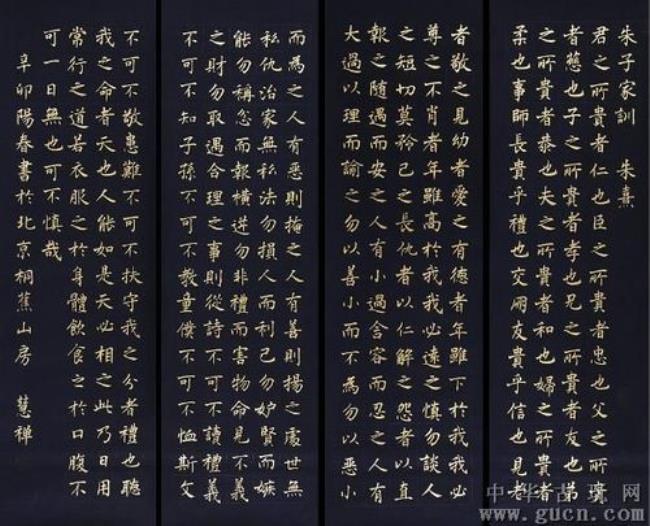 朱子家訓 朱熹
君之所貴者仁也臣之所貴者忠也父之所貴
者慈也子之所貴者孝也兄之所貴者友也弟
之所貴者恭也夫之所貴者和也婦之所貴者
柔也事師長貴乎禮也交朋友貴乎信也見老
者敬之見幼者愛之有德者年雖下於我我必
尊之不肖者年雖高於我我必遠之慎勿談人
之短切莫矜己之長仇者以仁解之怨者以直
報之隨遇而安之人有小過含容而忍之人有
大過以理而諭之勿以善小而不為勿以惡小
而為之人有惡則掩之人有善則揚之處世無
私仇治家無私法勿損人而利己勿妒賢而嫉
能勿稱忿而報橫逆勿非禮而害物命見不義
之財勿取遇合理之事則從詩不可不讀禮義
不可不知子孫不可不教童僕不可不恤斯文
不可不敬患難不可不扶守我之分者禮也聽
我之命者天也人能如是天必相之此乃日用
常行之道若衣服之於身體飲食之於口腹不
可一日無也可不慎哉
辛卯陽春書於北京桐蕉山房 慧禪
中华古玩网
www.gucn.com